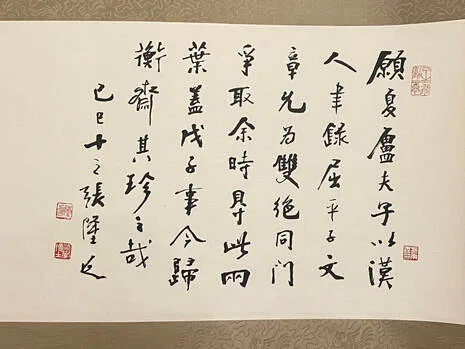 願夏廬夫子以漢
人聿錄屈平子文
章允为雙絕同門
爭取余時㝵此兩
葉蓋戊子事今歸
衡齋其珍之哉
己巳十二張隆延